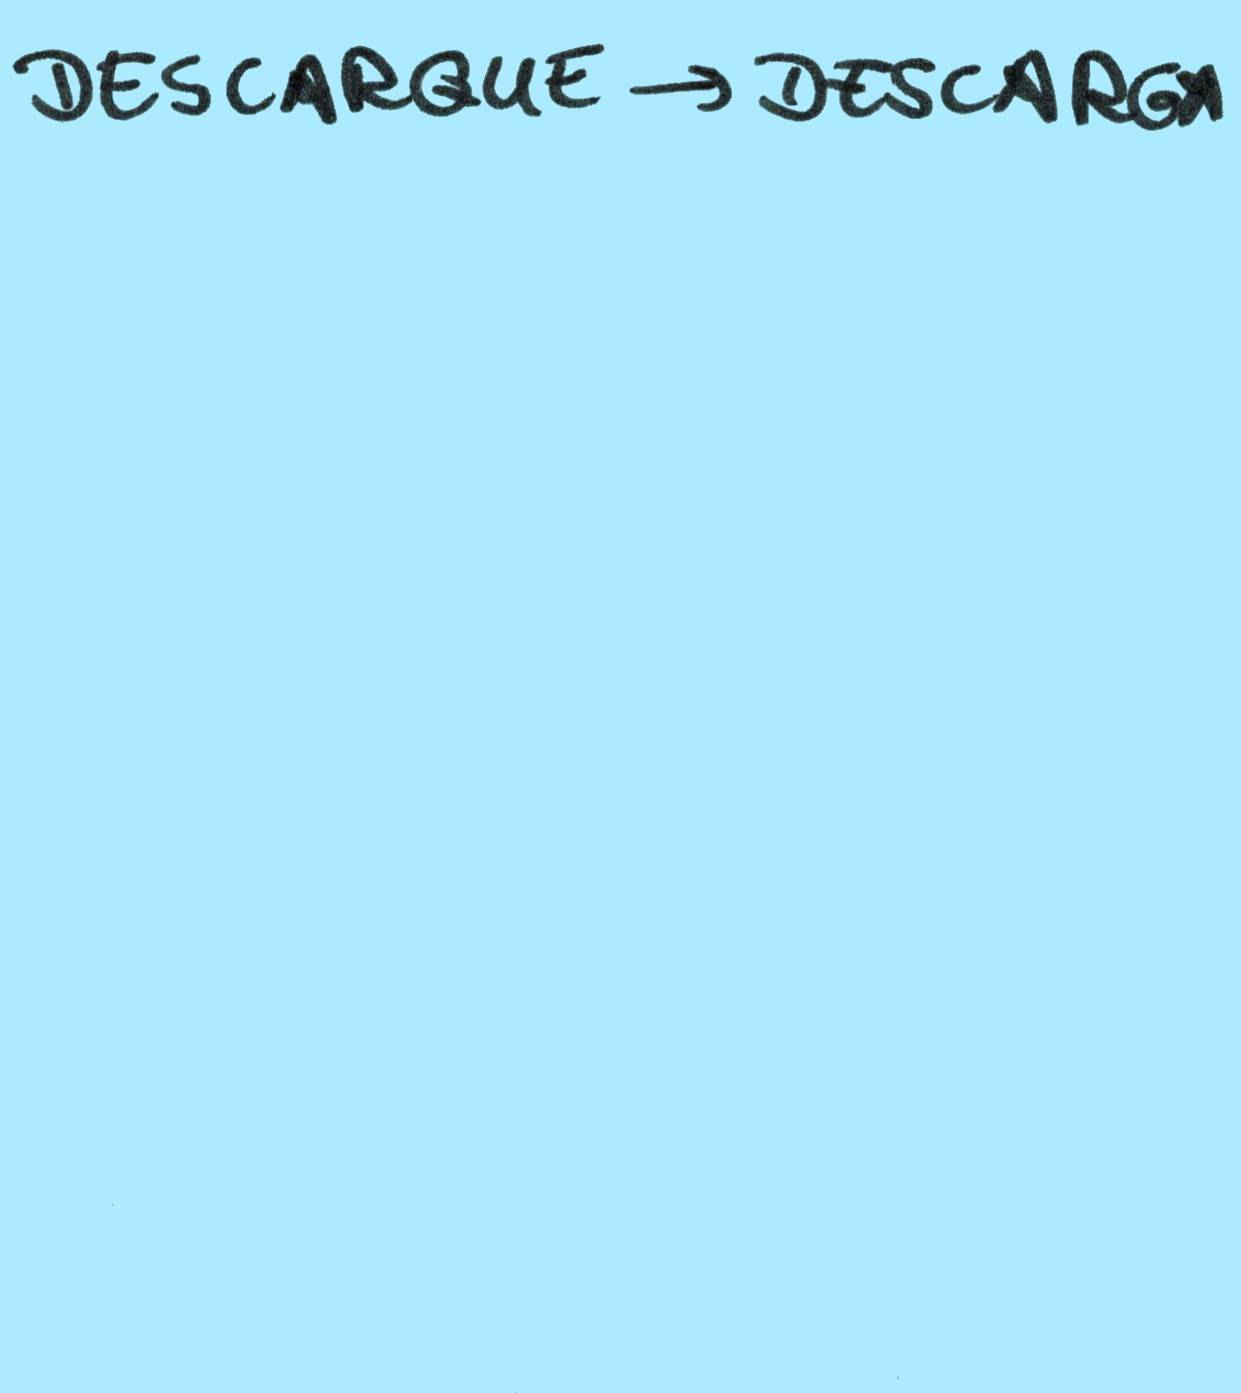 DESCARGUE → DESCARGA